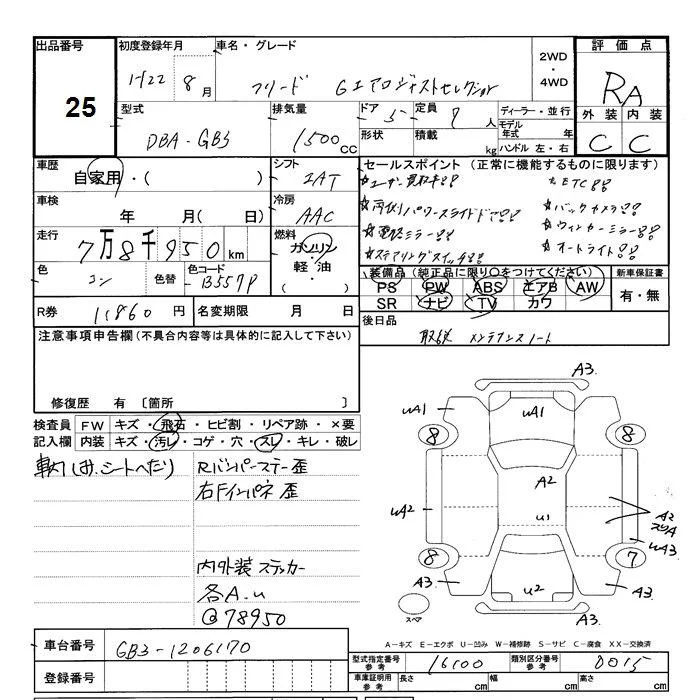 出品番号
25
初度登録年月
H22年8月
車名・グレード
フリード Gエアロジャストセレクション
2WD
・
4WD
評価点
RA
外装 内装
C C
型式
DBA-GB3
排気量
1500cc
ドア 5
定員 7人
形状
積載 kg
ディーラー・並行
モデル年式 年
ハンドル 左・右
車歴
自家用・( )
シフト
IAT
車検
年 月( 日)
冷房
AAC
走行
7万8千950km
燃料
ガソリン
軽・油
・( )
色
コン
色替
色コード
B557P
R券 11,860円
名変期限 月 日
セールスポイント (正常に機能するものに限ります)
☆ユーザー買取車!!
☆ETC!!
☆両側パワースライドドア!!
☆バックカメラ!!
☆電格ミラー!!
☆ウィンカーミラー!!
☆ステアリングスイッチ!!
☆オートライト!!
装備品 (純正品に限り○をつけてください)
PS PW ABS エアB AW
SR ナビ TV カワ
新車保証書
有・無
後日品
取説 メンテナンスノート
注意事項申告欄(不具合内容等は具体的に記入して下さい)
修復歴 有 〔箇所 〕
検査員記入欄
FW キズ・飛石・ヒビ割・リペア跡・×要
内装 キズ・汚レ・コゲ・穴・スレ・キレ・破レ
シートへたり
Rバンパーステー歪
右Fインパネ歪
内外装ステッカー
各A.U
@78950
A3.
UA1
UA1
A3.
8
8
A2
UA2
U1
A2
スリA
UA3
8
7
A3.
U2
A3.
A3.
スペア
A-キズ E-エクボ U-凹み W-補修跡 S-サビ C-腐食 XX-交換済
車台番号
GB3-1206170
登録番号
型式指定番号
参考
16100
類別区分番号
参考
0015
車庫証明用
参考
長さ cm
幅 cm
高さ cm